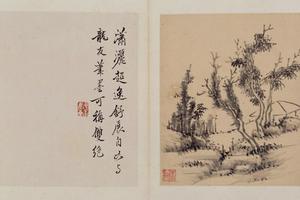 瀟灑超逸舒展自如与
龍友筆墨可稱雙絕